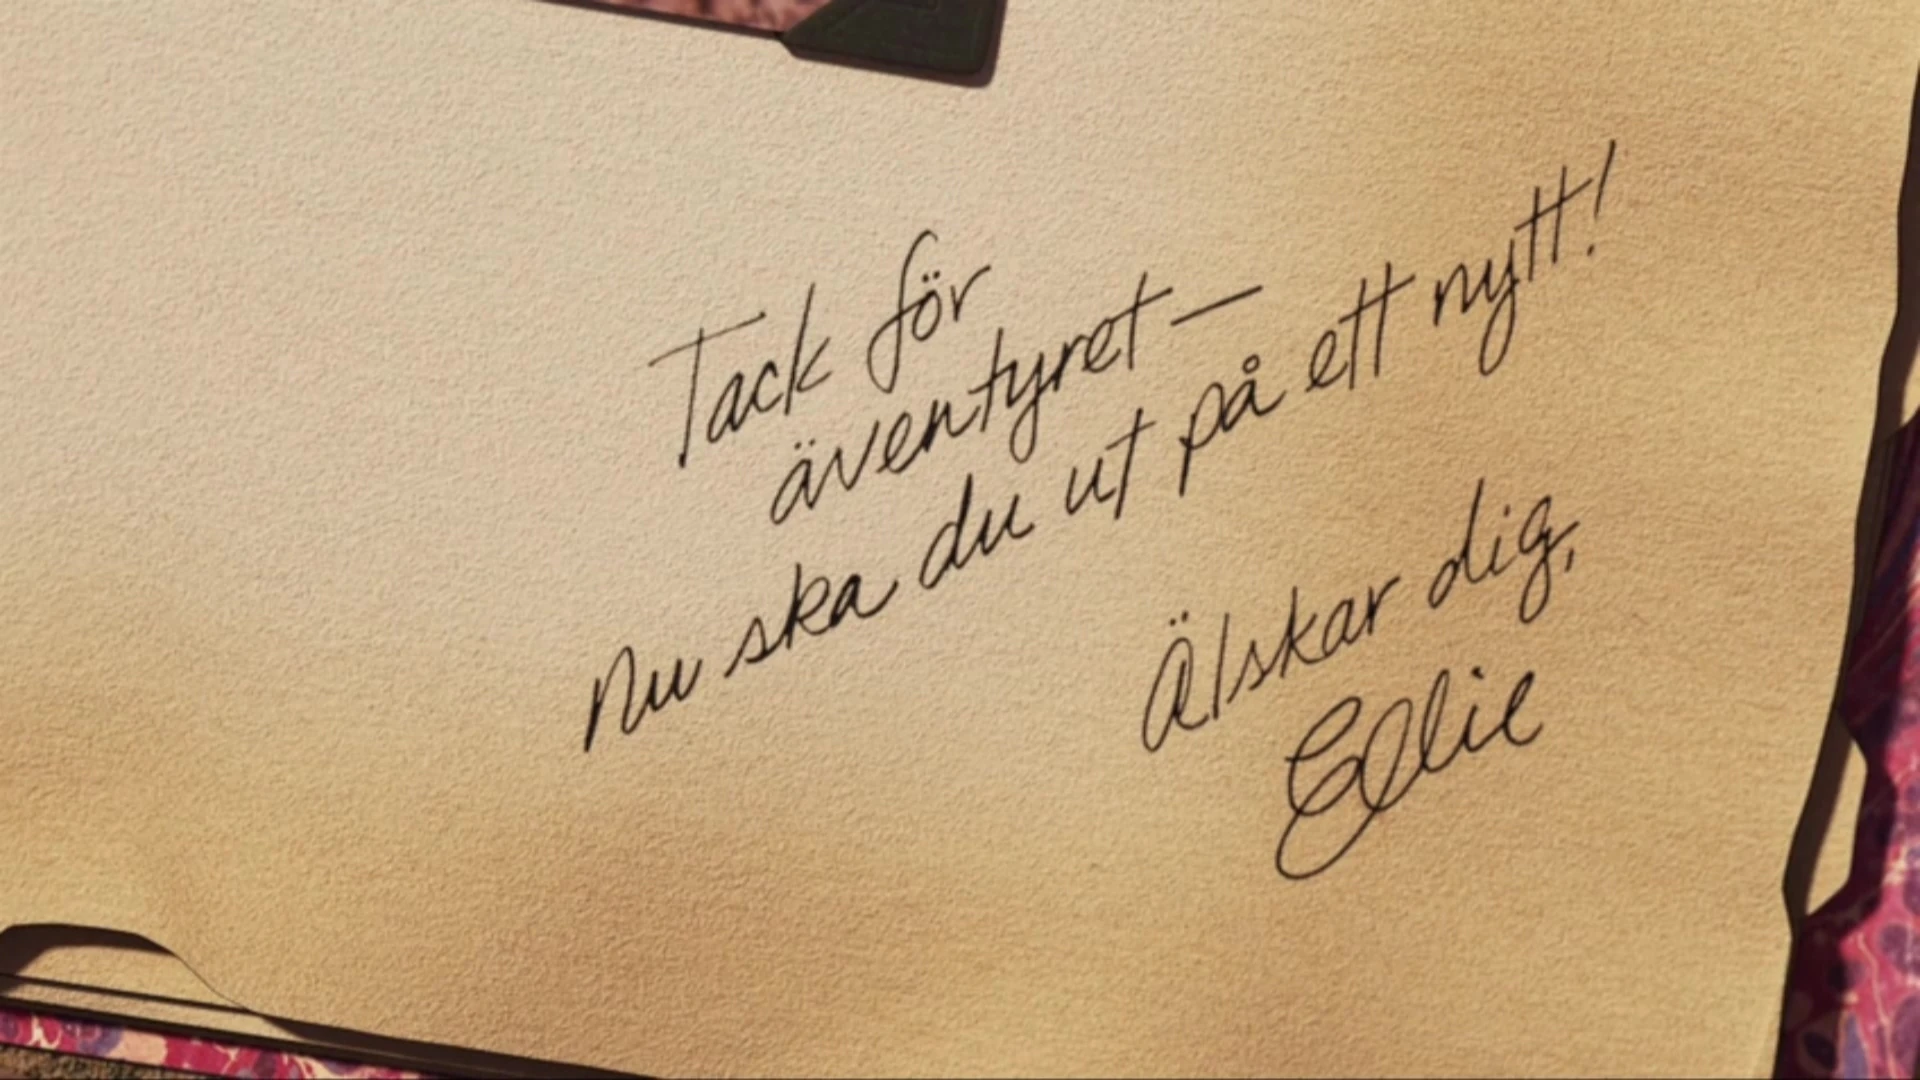 Tack för
äventyret—
Nu ska du ut på ett nytt!
Älskar dig,
Ellie